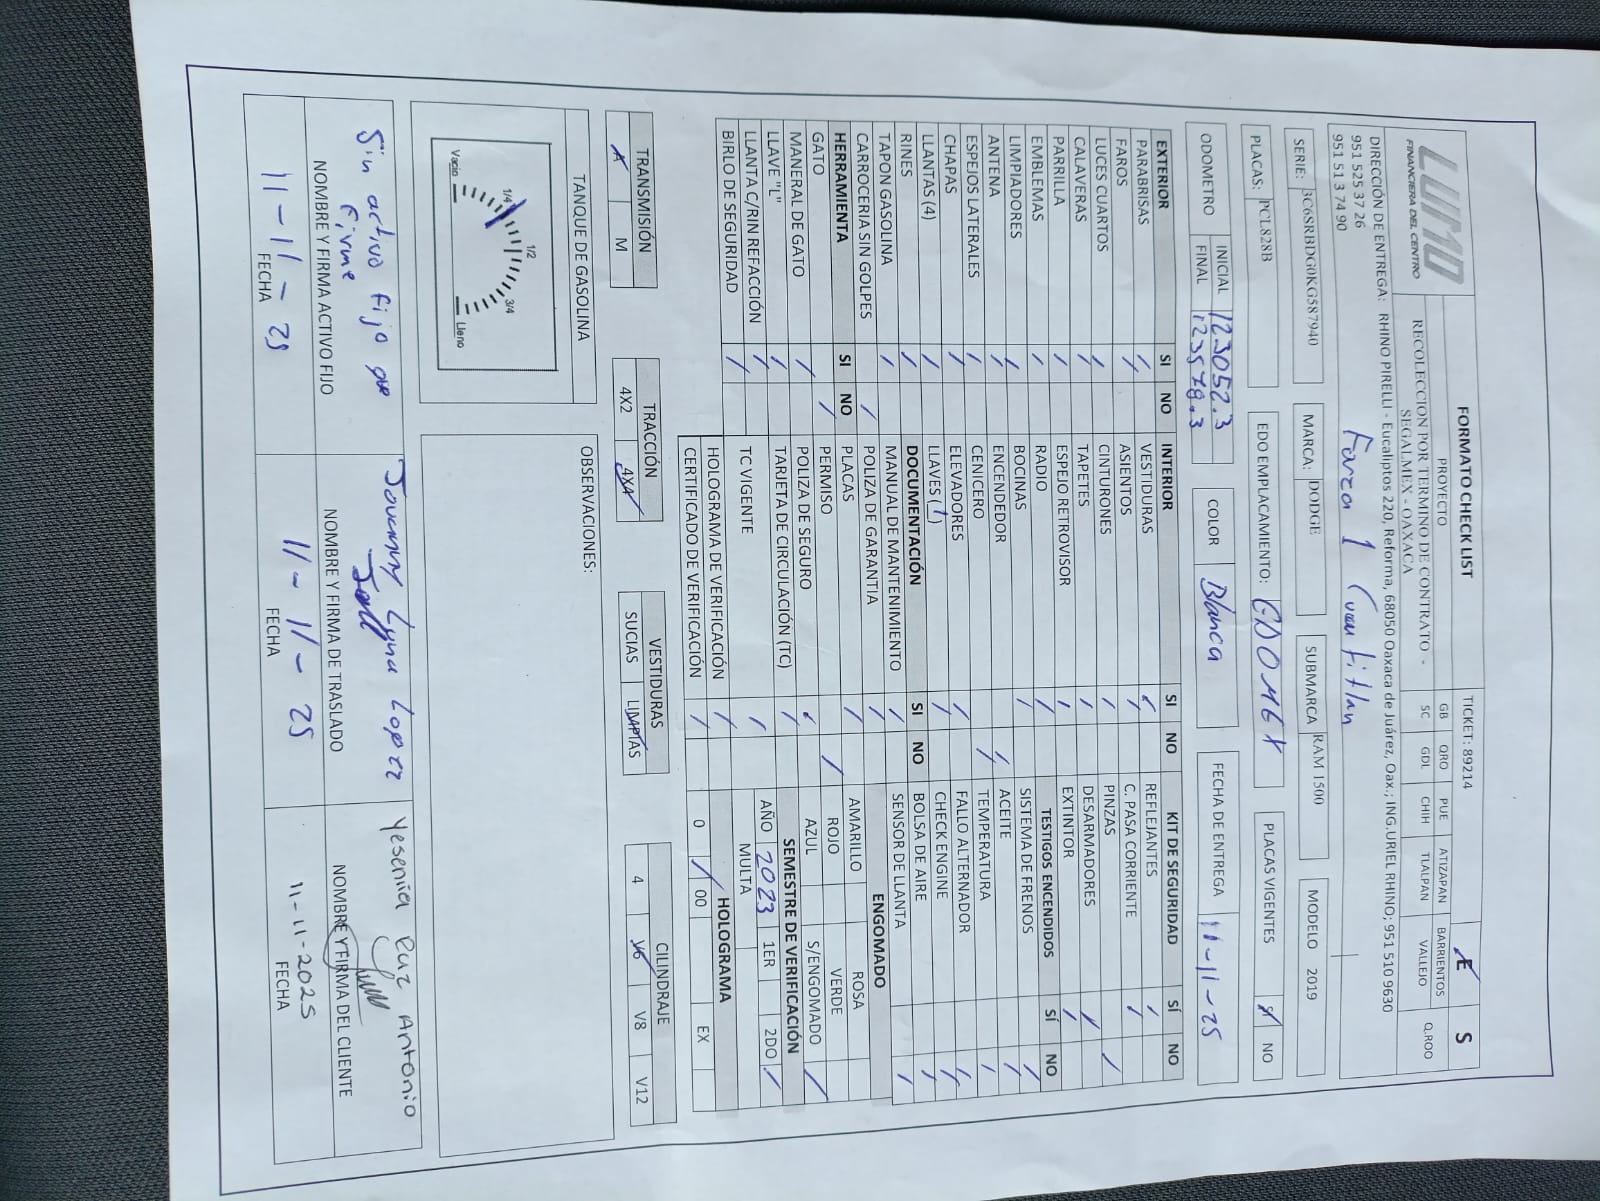 LUMO
FINANCIERA DEL CENTRO
FORMATO CHECK LIST
TICKET: 89214
E
S
PROYECTO
GB QRO PUE ATIZAPAN BARRIENTOS Q.ROO
RECOLECCION POR TERMINO DE CONTRATO -
SEGALMEX - OAXACA
SC GDL CHIH TLALPAN VALLEJO
DIRECCIÓN DE ENTREGA: RHINO PIRELLI - Eucaliptos 220, Reforma, 68050 Oaxaca de Juárez, Oax.; ING.URIEL RHINO; 951 510 9630
951 525 37 26
951 51 3 74 90
SERIE: 3C6SRBDG0KG587940
MARCA: DODGE
SUBMARCA RAM 1500
MODELO 2019
PLACAS: PCL828B
EDO EMPLACAMIENTO: EDOMEX
PLACAS VIGENTES SI NO
ODOMETRO
INICIAL 123052.3
FINAL 123578.3
COLOR Blanca
FECHA DE ENTREGA 11-11-25
EXTERIOR SI NO
PARABRISAS
FAROS
LUCES CUARTOS
CALAVERAS
PARRILLA
EMBLEMAS
LIMPIADORES
ANTENA
ESPEJOS LATERALES
CHAPAS
LLANTAS (4)
RINES
TAPON GASOLINA
CARROCERIA SIN GOLPES
HERRAMIENTA SI NO
GATO
MANERAL DE GATO
LLAVE "L"
LLANTA C/RIN REFACCIÓN
BIRLO DE SEGURIDAD
INTERIOR SI NO
VESTIDURAS
ASIENTOS
CINTURONES
TAPETES
ESPEJO RETROVISOR
RADIO
BOCINAS
ENCENDEDOR
CENICERO
ELEVADORES
LLAVES ( 1 )
DOCUMENTACIÓN SI NO
MANUAL DE MANTENIMIENTO
POLIZA DE GARANTIA
PLACAS
PERMISO
POLIZA DE SEGURO
TARJETA DE CIRCULACIÓN (TC)
TC VIGENTE
HOLOGRAMA DE VERIFICACIÓN
CERTIFICADO DE VERIFICACIÓN
KIT DE SEGURIDAD SÍ NO
REFLEJANTES
C. PASA CORRIENTE
PINZAS
DESARMADORES
EXTINTOR
TESTIGOS ENCENDIDOS SÍ NO
SISTEMA DE FRENOS
ACEITE
TEMPERATURA
FALLO ALTERNADOR
CHECK ENGINE
BOLSA DE AIRE
SENSOR DE LLANTA
ENGOMADO
AMARILLO ROSA
ROJO VERDE
AZUL S/ENGOMADO
SEMESTRE DE VERIFICACIÓN
AÑO 2023 1ER 2DO
MULTA
HOLOGRAMA
0 00 EX
TRANSMISIÓN
A M
TRACCIÓN
4X2 4X4
VESTIDURAS
SUCIAS LIMPIAS
CILINDRAJE
4 V6 V8 V12
TANQUE DE GASOLINA
Vacio 1/4 1/2 3/4 Lleno
OBSERVACIONES:
Sin activo fijo que
firme
NOMBRE Y FIRMA ACTIVO FIJO
11-11-25
FECHA
Luna Lopez
NOMBRE Y FIRMA DE TRASLADO
11-11-25
FECHA
Yesenia Ruiz Antonio
NOMBRE Y FIRMA DEL CLIENTE
11-11-2025
FECHA